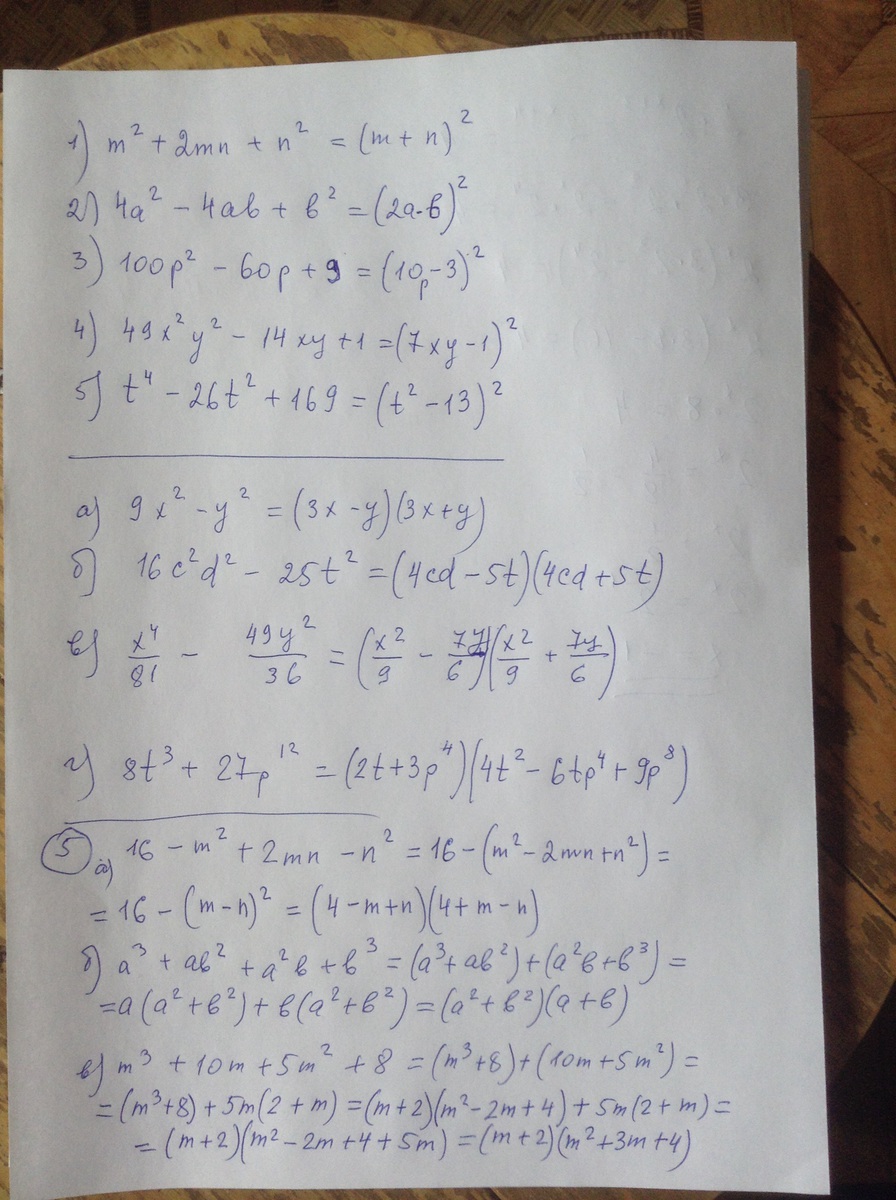 1) m² + 2mn + n² = (m + n)²
2) 4a² - 4ab + b² = (2a-b)²
3) 100p² - 60p + 9 = (10p-3)²
4) 49x²y² - 14xy + 1 = (7xy-1)²
5) t⁴ - 26t² + 169 = (t² - 13)²
а) 9x² - y² = (3x - y)(3x + y)
б) 16c²d² - 25t² = (4cd - 5t)(4cd + 5t)
в) x⁴/81 - 49y²/36 = (x²/9 - 7y/6)(x²/9 + 7y/6)
г) 8t³ + 27p¹² = (2t+3p⁴)(4t² - 6tp⁴ + 9p⁸)
5 а) 16 - m² + 2mn - n² = 16 - (m² - 2mn + n²) =
= 16 - (m-n)² = (4 - m + n)(4 + m - n)
б) a³ + ab² + a²b + b³ = (a³ + ab²) + (a²b + b³) =
= a(a² + b²) + b(a² + b²) = (a² + b²)(a + b)
в) m³ + 10m + 5m² + 8 = (m³ + 8) + (10m + 5m²) =
= (m³+8) + 5m(2 + m) = (m+2)(m² - 2m + 4) + 5m(2 + m) =
= (m+2)(m² - 2m + 4 + 5m) = (m+2)(m² + 3m + 4)